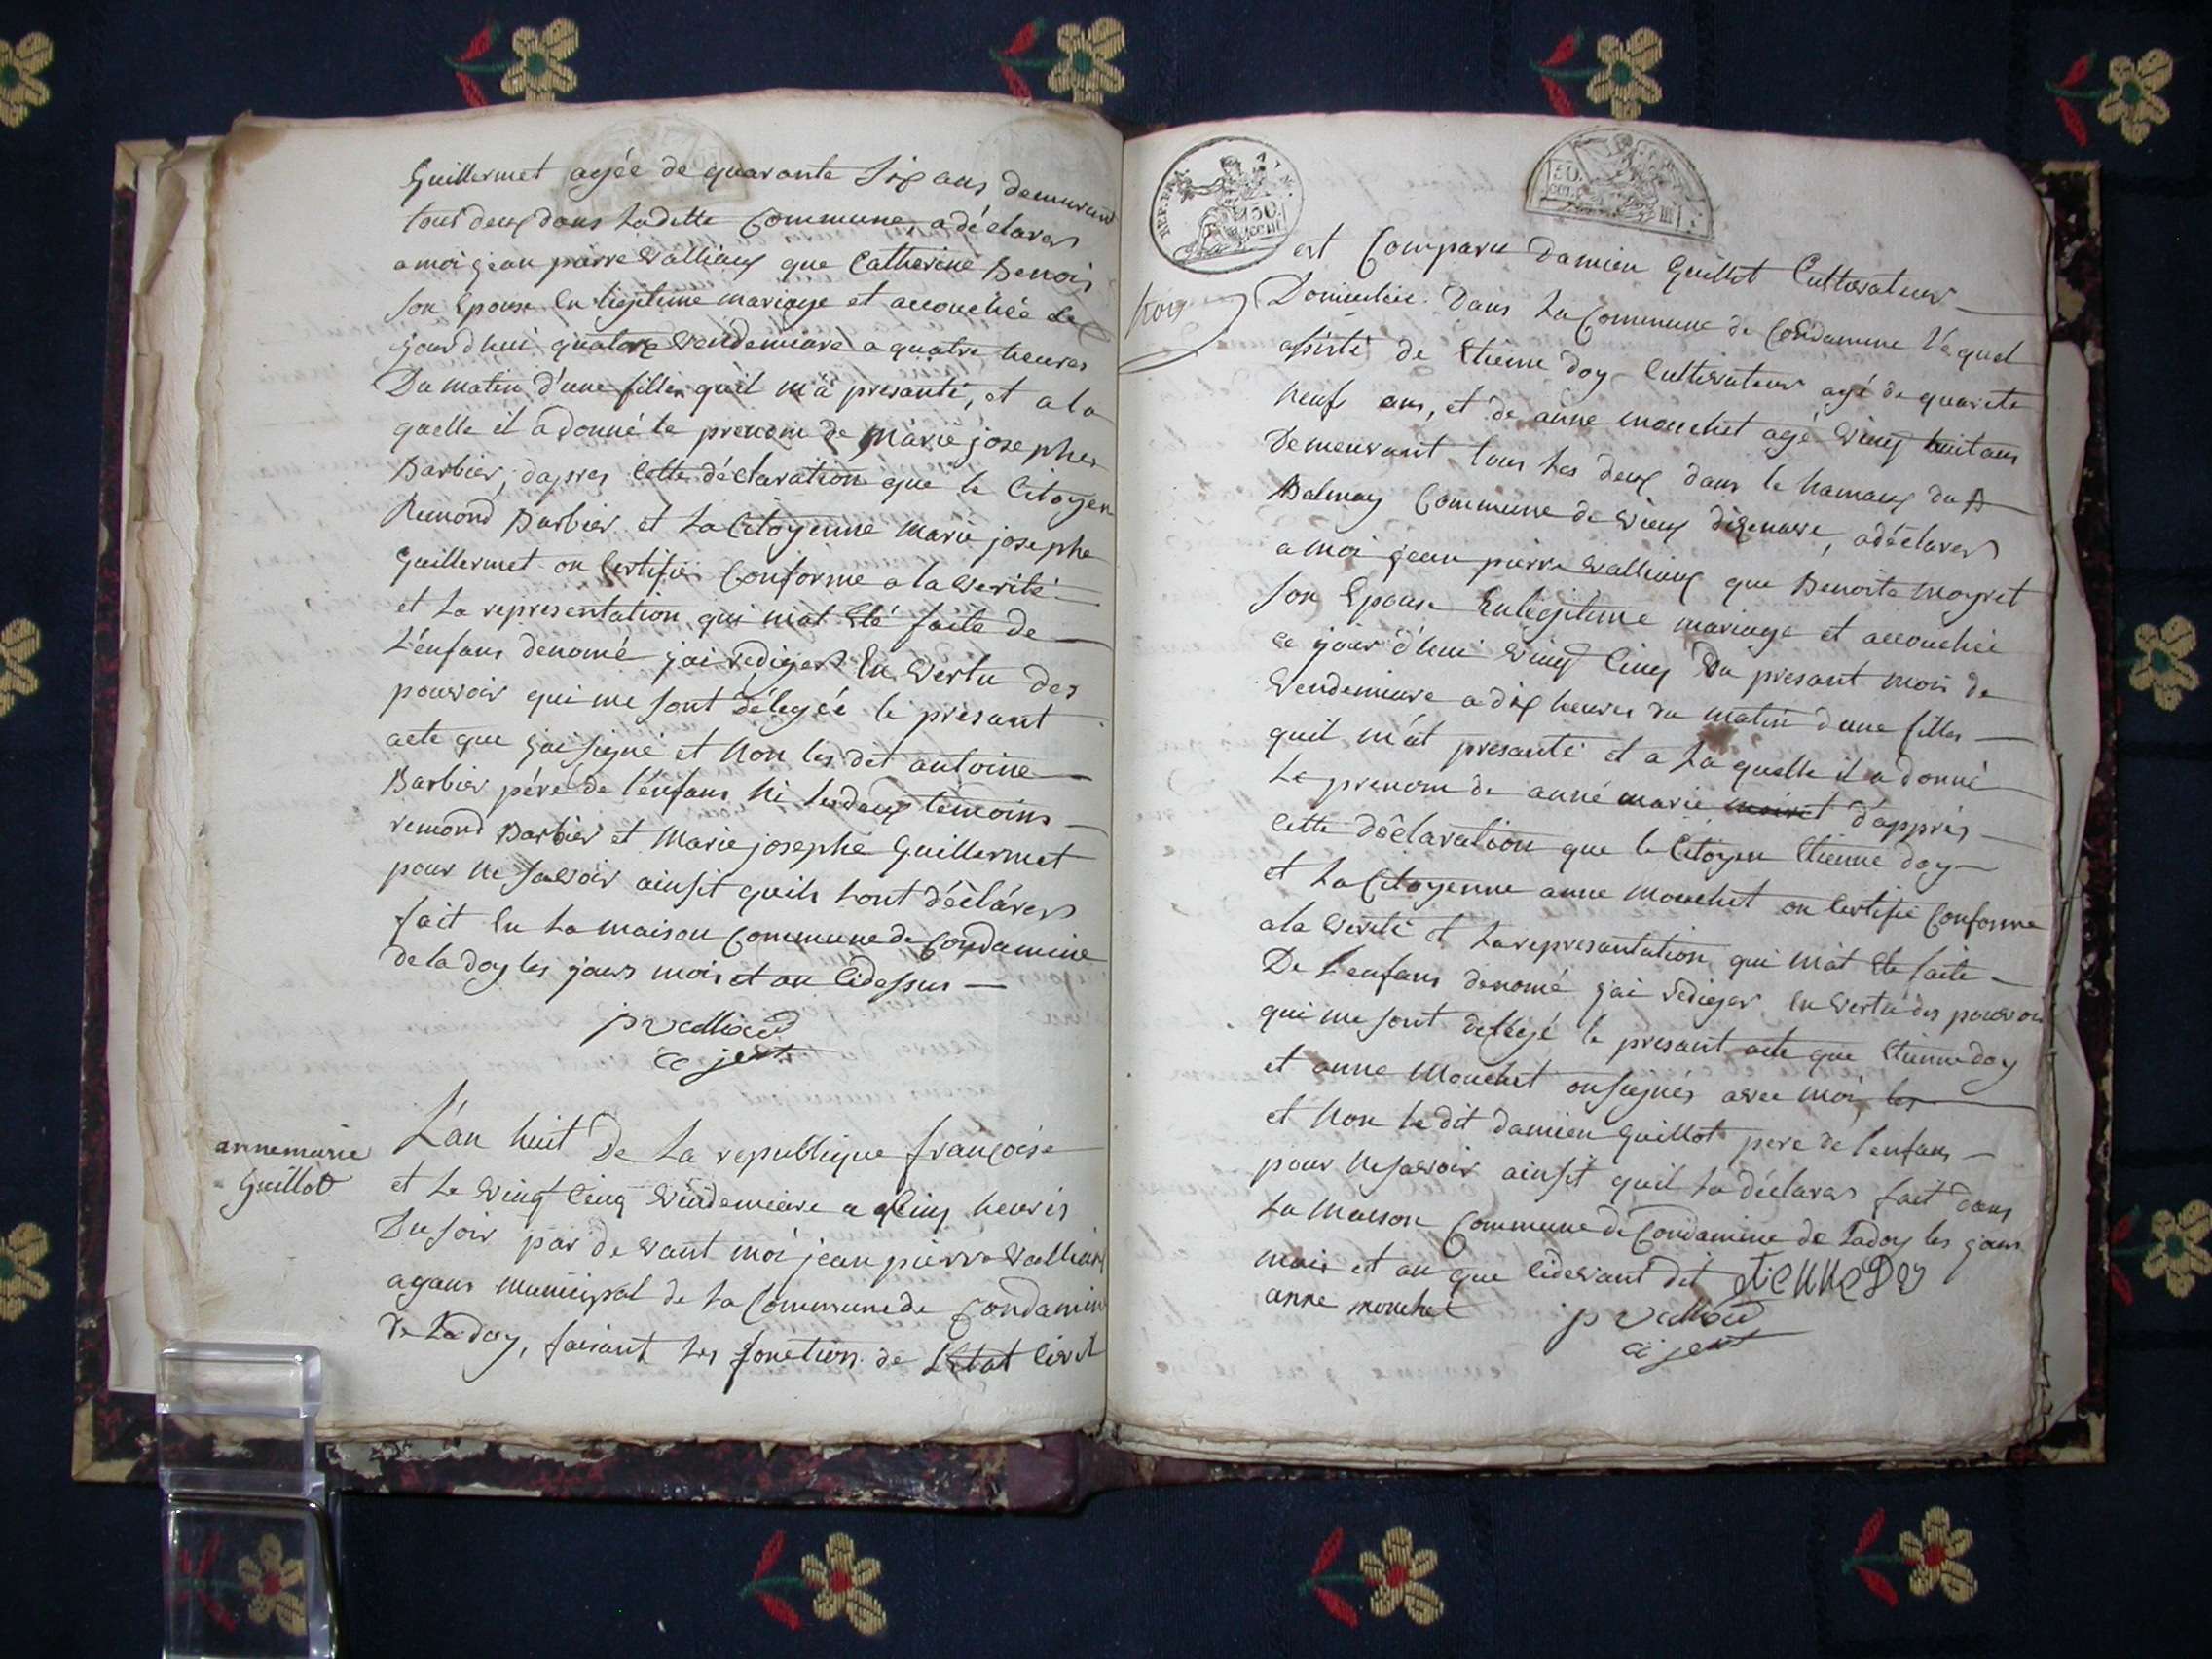 Guillermet agée de quarante six ans demeurant
tous deux dans Ladette Commune, a déclarer
a moi jean pierre Valliaux que Catherine Benois
son Epouse En legitime mariage et accouchée Le
jourdhui quatorze vendemiare a quatre heures
Du matin d'une filles quil m'a presanté, et a la
quelle il a donné le prenom de marie josephes
Barbier; dapres cette déclaration que le Citoyen
Remond Barbier et La Citoyenne Marie josephe
Guillermet on Certifié Conforme a la verité
et La representation qui mat Eté faite de
L'enfans denomé jai redigers En vertu des
pouvoir qui me sont délegéé le présant
acte que jai signé et Non les dit antoine
Barbier pére de l'enfans Ni les deux témoins
remond Barbier et Marie josephe Guillermet
pour Ne savoir ainsit quils Lont déclárer
fait En La maison Commune de Condamine
de la doy les jours mois et an Cidessus
jp valliaud
ajent
annemarie
Guillot
L'an huit de La republique françoise
et Le vingt Cinq vendemiere a Cinq heures
Du soir par devant moi jean pierre Valliaux
agans municipal de La Commune de Condamine
de Ladoy, faisant Les fonction de L'Etat Civil
REP. FRA.
50.
CENT.
est Comparu Damien Guillot Cultivateur
Domicilié Dans La Commune de Condamine Le quel
assisté de Etienne doy Cultivateur agé de quarete
Neuf ans, et de anne mouchet agé vingt huit ans
Demeurant tous Les deux dans le hamaux du
Balmay Commune de vieux dizenave, a déclarer
a moi jean pierre Valliaux que Benoite moyret
son Epouse En legitime mariage et accouchée
ce jour d'hui vingt Cinq Du presant mois de
vendemiare a dix heures du matin d'une filles
quil m'at presanté et a La quelle il a donné
Le prenom de anne marie d'apprés
cette déclaration que le Citoyen Etienne doy
et La Citoyenne anne mouchet on Certifié Conforme
a la verité et La representation qui m'at Ete faite
De L'enfans denomé j'ai redieger En vertu des pouvoir
qui me sont delegé le presant acte que Etienne doy
et anne Mouchet on signés avec moi les
et Non Le dit damien Guillot pere de l'enfans
pour Ne savoir ainsit quil La déclarer fait dans
La Maison Commune de Condamine de Ladoy les jours
mois et an que cidevant dit etieNNeDo
anne mouchet
jp valliaud
ajent